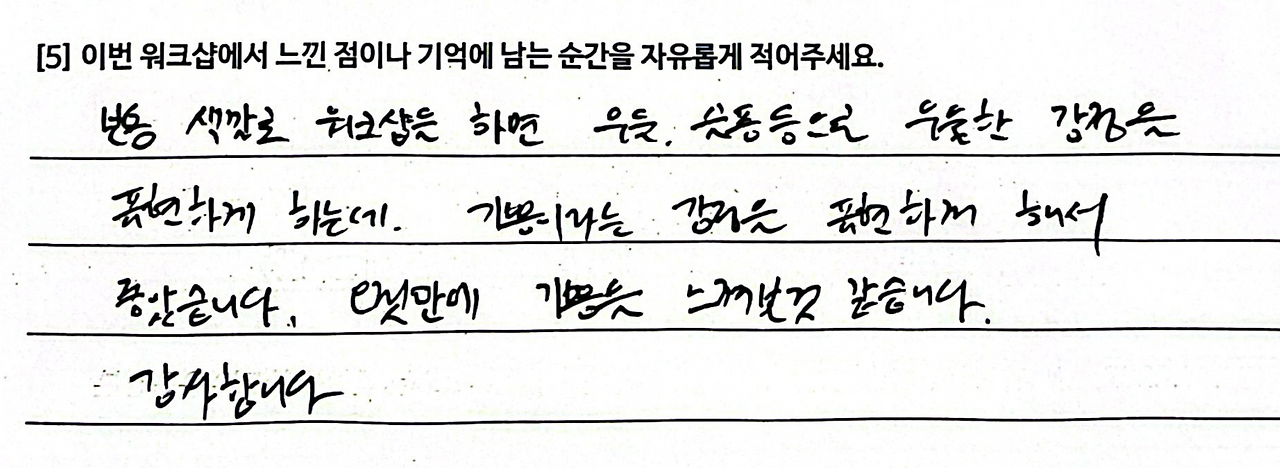 [5] 이번 워크샵에서 느낀 점이나 기억에 남는 순간을 자유롭게 적어주세요.
보통 색깔로 워크샵을 하면 우울, 슬픔등으로 우울한 감정을
표현하게 하는데. 기쁨이라는 감정을 표현하게 해서
좋았습니다. 오랫만에 기쁨을 느껴본것 같습니다.
감사합니다